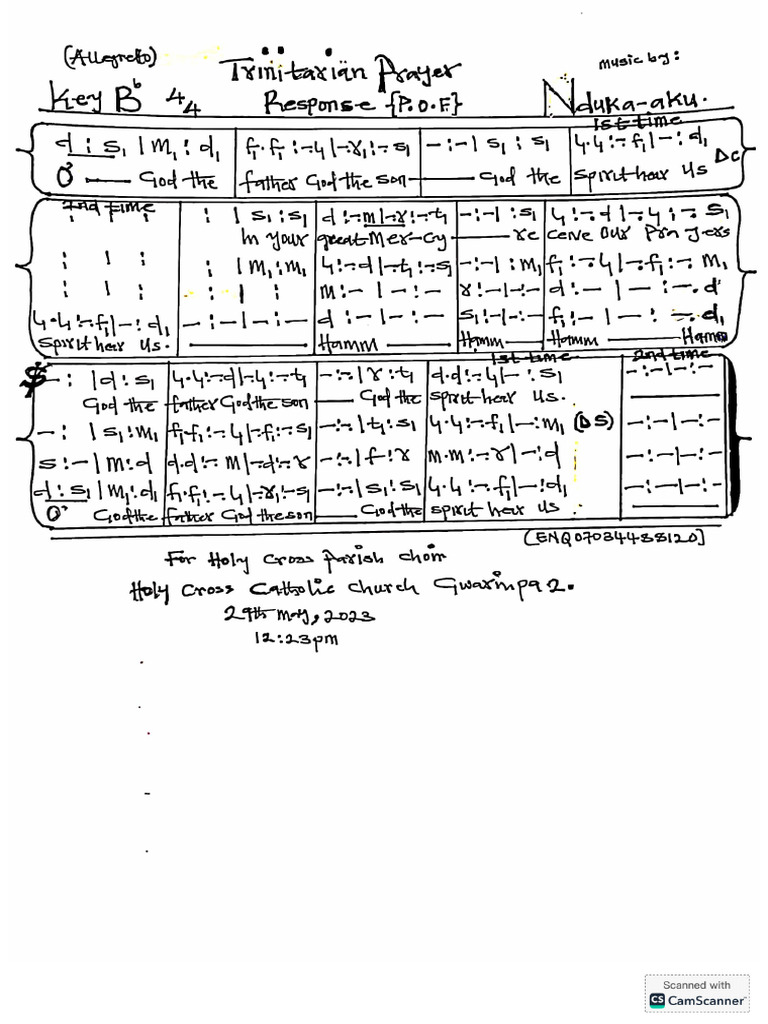 (Allegretto) Trinitarian Prayer music by:
Key B♭ 4/4 Response {P.O.F} Nduka-aku.
1st time
d : s₁ | m₁ : d₁ | f₁.f₁ :-.l₁ |-.r₁ :-.s₁ | - : - | s₁ : s₁ | l₁.l₁ :-.f₁ | - : d₁ DC
O — God the father God the son — God the spirit hear us
2nd time
: | : | : | s₁ : s₁ | d :-.m |-.r :-.t₁ | - : - | : s₁ | l₁ :-.d |-.l₁ :-. s₁
In your great Mer-cy — re ceive our Prayers
: | : | : | m₁ : m₁ | l₁ :-.d |-.t₁ :-.s₁ | - : - | : m₁ | f₁ :-.l₁ |-.f₁ :-. m₁
: | : | : | : | m : - | - : - | r : - | - : - | d : - | - : -. d'
l₁.l₁ :-.f₁ | - : d₁ | - : - | - : - | d : - | - : - | s₁ : - | - : - | f₁ : - | - : -. d₁
spirit hear us. — Hamm — Hamm — Hamm — Hamm
1st time 2nd time
- : | d : s₁ | l₁.l₁ :-.d |-.l₁ :-.t₁ | - : - | r : t₁ | d.d :-.l₁ | - : s₁ | - : - | - : -
God the father God the son — God the spirit hear us.
- : | s₁ : m₁ | f₁.f₁ :-.l₁ |-.f₁ :-.s₁ | - : - | t₁ : s₁ | l₁.l₁ :-.f₁ | - : m₁ (DS) | - : - | - : -
s : - | m : d | d.d :-.m |-.d :-.r | - : - | f : r | m.m :-.r | - : d | - : - | - : -
d : s₁ | m₁ : d₁ | f₁.f₁ :-.l₁ |-.r₁ :-.s₁ | - : - | s₁ : s₁ | l₁.l₁ :-.f₁ | - : d₁ | - : - | - : -
O' God the father God the son — God the spirit hear us
[ENQ07034488120]
For Holy Cross Parish Choir
Holy Cross Catholic Church Gwarinpa 2.
29th may, 2023
12:23pm
Scanned with
CS CamScanner